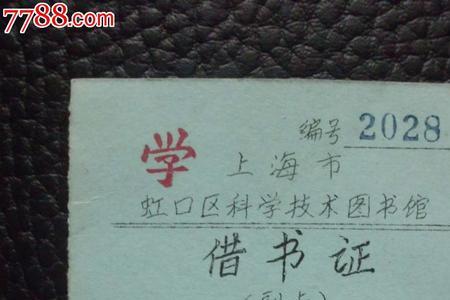 7788.com
编号 2028
学 上海市
虹口区科学技术图书馆
借书证